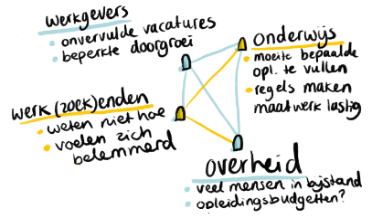 werkgevers
• onvervulde vacatures
• beperkte doorgroei
onderwijs
• moeite bepaalde
opl. te vullen
• regels maken
maatwerk lastig
werk(zoek)enden
• weten niet hoe
• voelen zich
belemmerd
overheid
• veel mensen in bijstand
• opleidingsbudgetten?